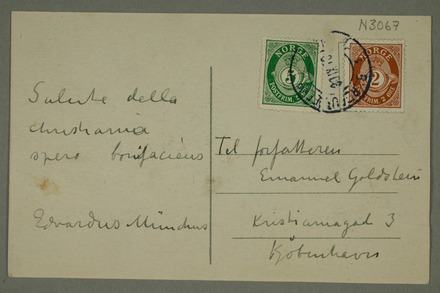 N3067
NORGE
5
POSTFRIM.
NORGE
2
POSTFRIM. 2 ØRE
Salute della
christiania
spero bonifaciens
Edvardus Münchus
Til forfatteren
Emanuel Goldstein
Kristianiagad 3
Kjøbenhavn